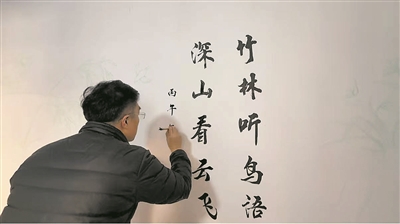 竹林听鸟语
深山看云飞
丙午